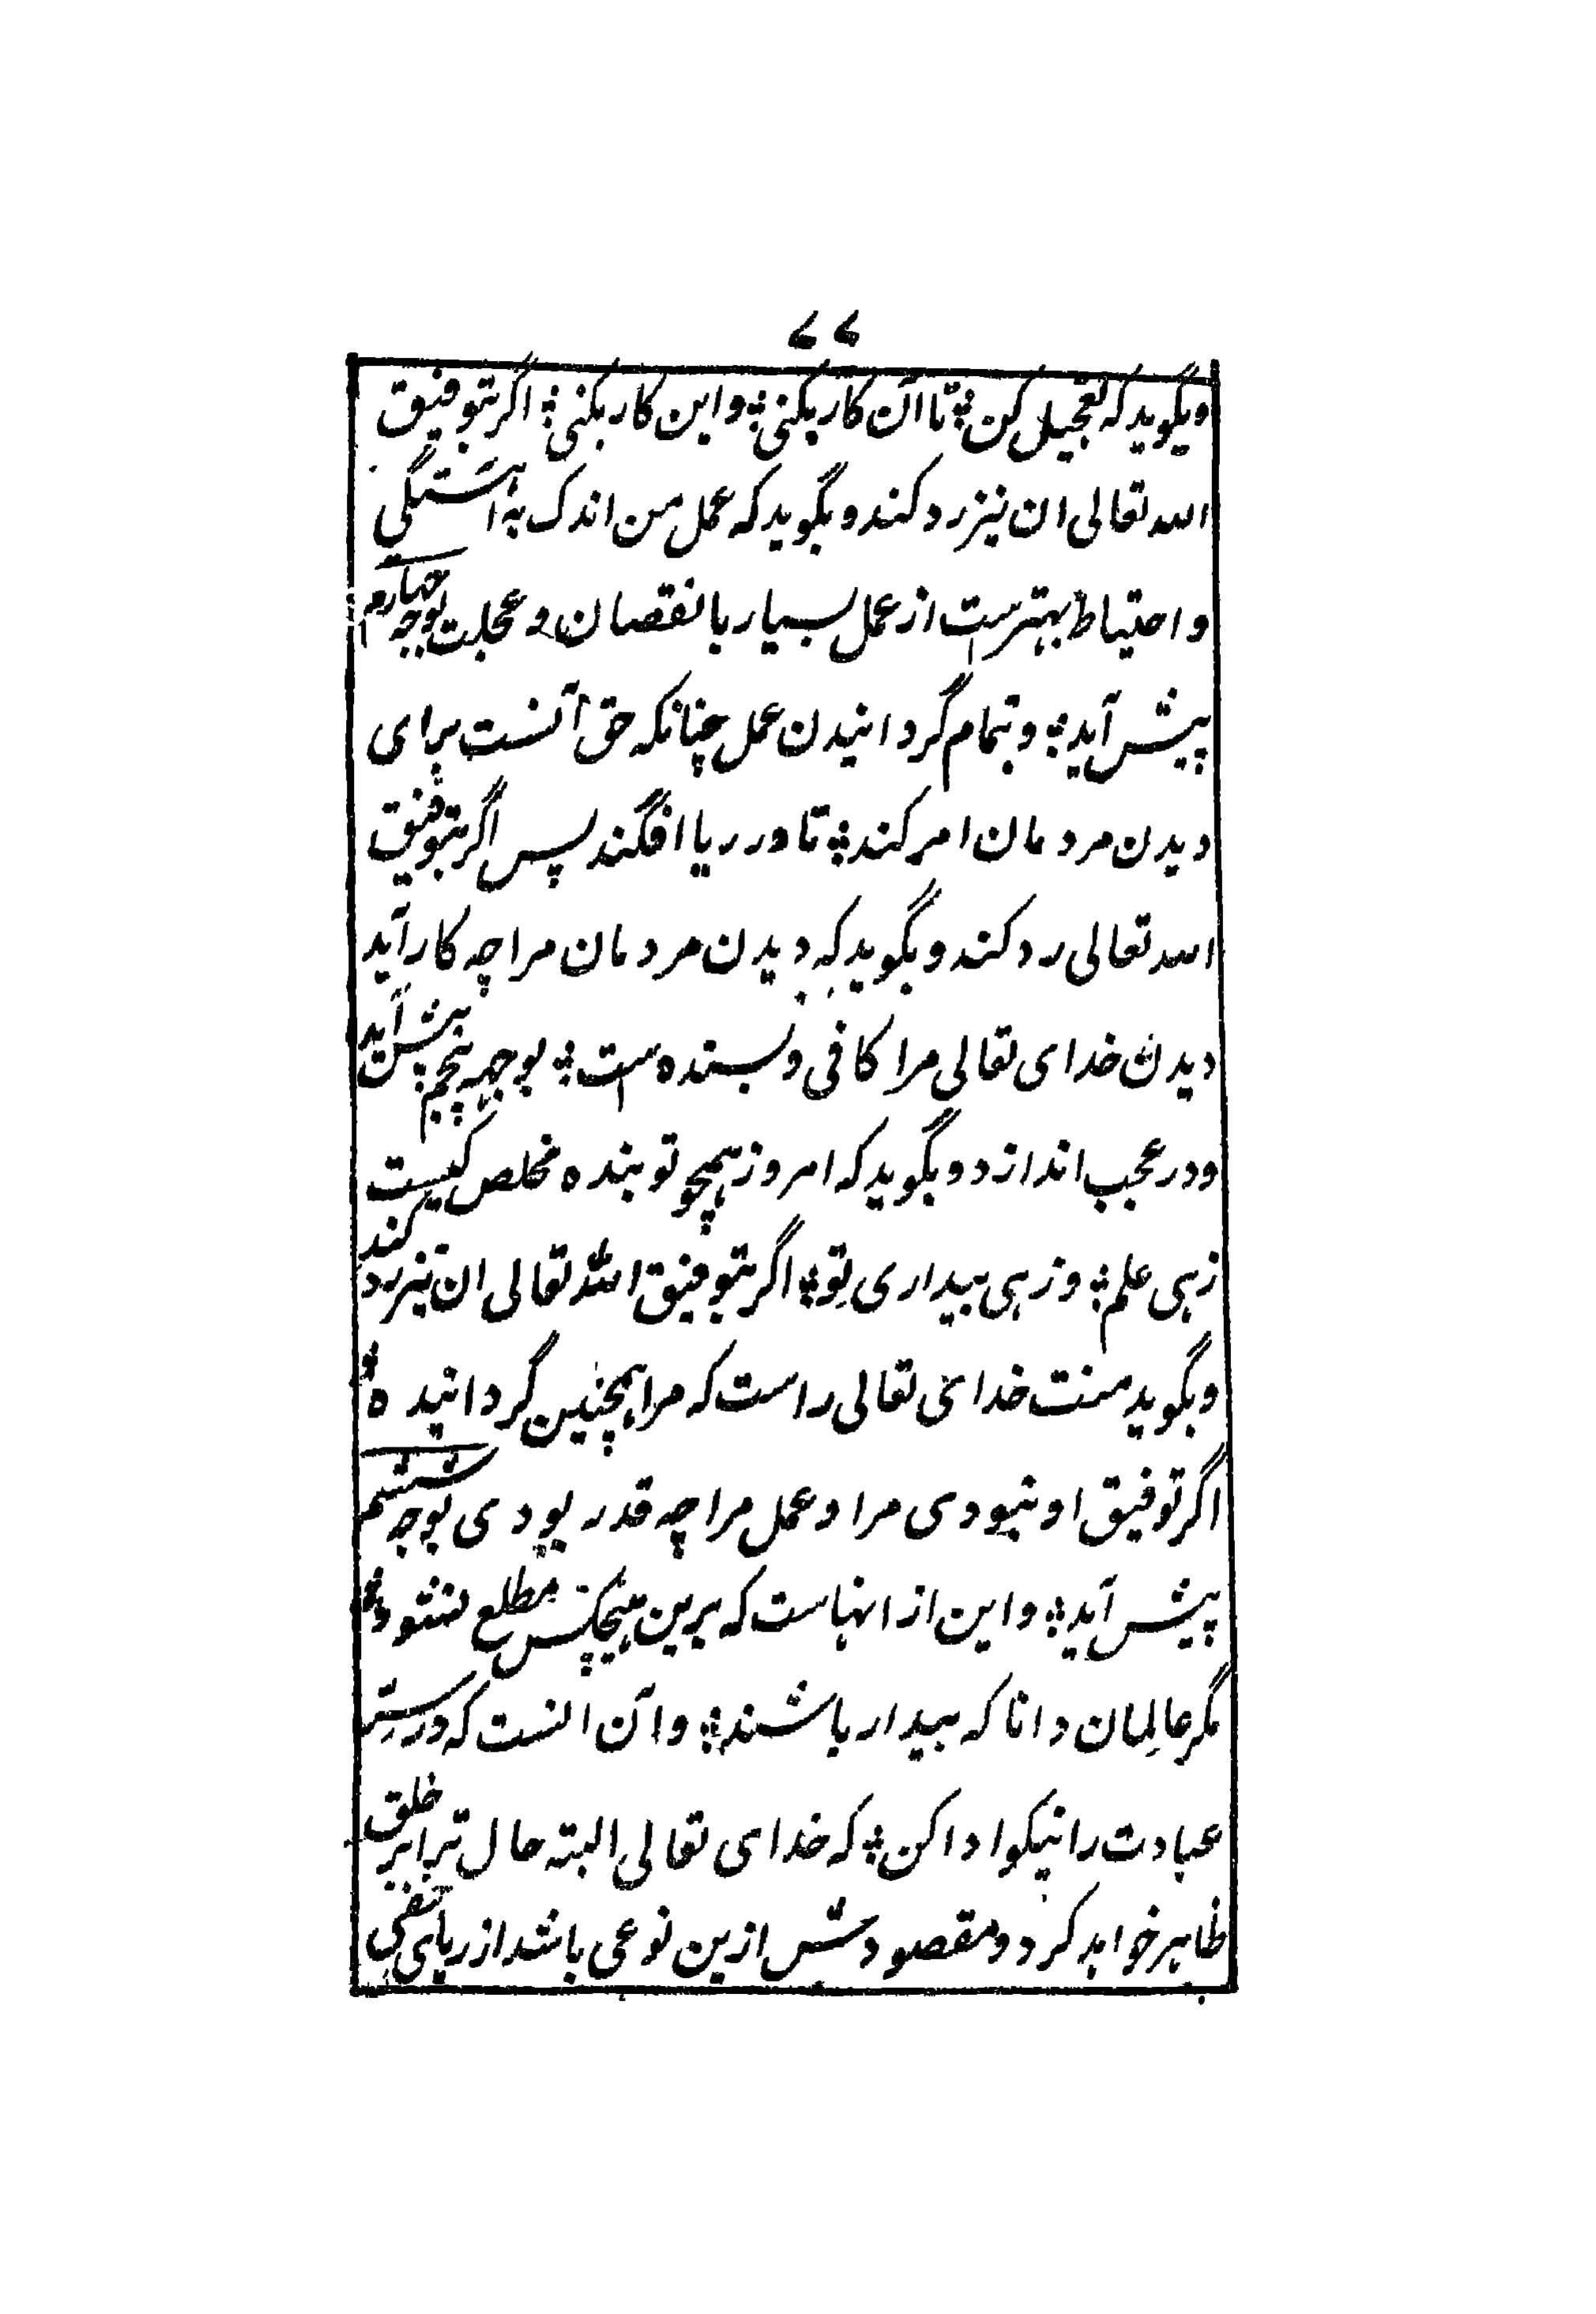 ۷۷
وبگوید که تعجیل کن؛ تا آن کار بکنی؛ واین کار بکنی؛ اگر بتوفیق
الله تعالی ان نیز رد کند و بگوید که عمل من اندک به آهستگی
و احتیاط بهترست از عمل بسیار با نقصان و عجلت بوجه چهارم
پیش آید؛ و تمام گردانیدن عمل چنانکه حق آنست برای
دیدن مردمان امر کند؛ تا در ریا افگند پس اگر بتوفیق
الله تعالی رد کند و بگوید که دیدن مردمان مرا چه کار آید
دیدن خدای تعالی مرا کافی و بسنده است؛ بوجهه پنجم پیش آید
و در عجب اندازد و بگوید که امروز همچو تو بنده مخلص کیست
زهی علم؛ و زهی بیداری تو؛ اگر بتوفیق الله تعالی ان نیز رد کند
و بگوید منت خدائ تعالی راست که مرا همچنین گردانیده؛
اگر توفیق او نبودی مرا و عمل مرا چه قدر بودی بوجه ششم
پیش آید؛ و این از انهاست که برین هیچکس مطلع نشود؛
مگر عالمان دانا که بیدار باشند؛ و آن انست که در ستر
عبادت را نیکو ادا کن؛ که خدای تعالی البته حال ترا بر خلق
ظاهر خواهد کرد و مقصودش ازین نوعی باشد از ریای خفی